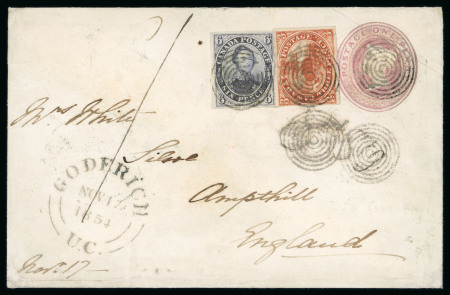 CANADA POSTAGE
SIX PENCE
POSTAGE ONE
Mrs White
Silsoe
Ampthill
England
GODERICH
NOV 17
1854
U.C.
Nov. 17